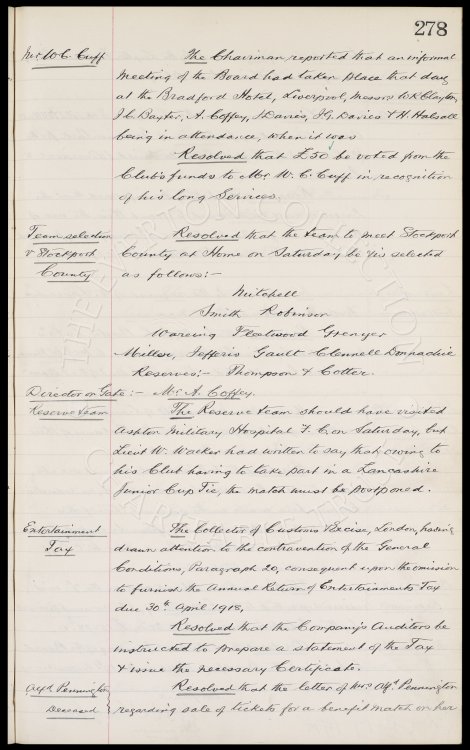 278
Mr W.C. Cuff
The Chairman reported that an informal
Meeting of the Board had taken place that day
at the Bradford Hotel, Liverpool, Messrs W.R. Clayton,
J.C. Baxter, A. Coffey, J. Davies, J.G. Davies & H. Halsall
being in attendance, when it was
Resolved that £50 be voted from the
Club's funds to Mr. W. C. Cuff in recognition
of his long Services.
Team selection
v Stockport
County
Resolved that the team to meet Stockport
County at Home on Saturday be selected
as follows:-
Mitchell
Smith Robinson
Wareing Fleetwood Grenyer
Miller, Jefferis Gault Clennell Donnachie
Reserves:- Thompson & Cotter.
Director on Gate:- Mr A. Coffey.
Reserve team
The Reserve team should have visited
Ashton Military Hospital F.C on Saturday, but
Lieut W. Wacker had written to say that owing to
his Club having to take part in a Lancashire
Junior Cup Tie, the match must be postponed.
Entertainment
Tax
The Collector of Customs & Excise, London, having
drawn attention to the contravention of the General
Conditions, Paragraph 20, consequent upon the omission
to furnish the Annual Return of Entertainments Tax
due 30th April 1918,
Resolved that the Company's Auditors be
instructed to prepare a statement of the Tax
& issue the necessary Certificate.
Alfd. Pennington
Deceased
Resolved that the letter of Mrs Alfd. Pennington
regarding sale of tickets for a benefit match on her
THE EVERTON COLLECTION
CHARITABLE TRUST